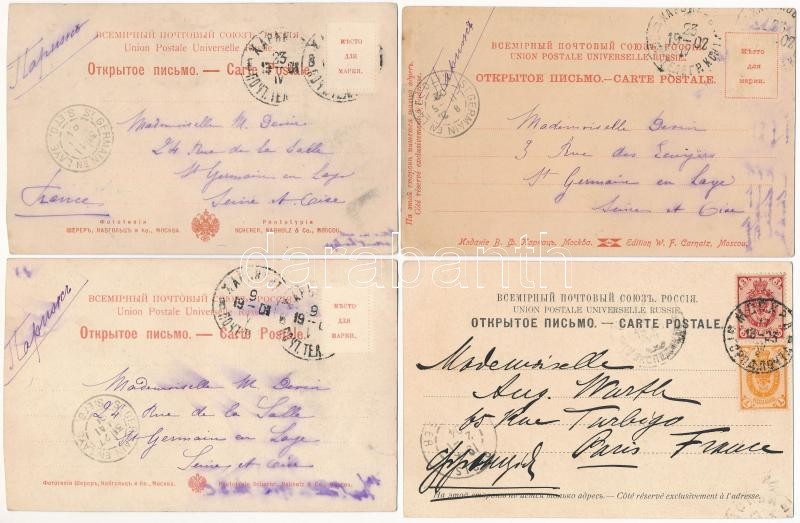 Парижъ
ВСЕМІРНЫЙ ПОЧТОВЫЙ СОЮЗЪ.
Union Postale Universelle
Открытое письмо. — Carte Postale.
МѢСТО
ДЛЯ
МАРКИ.
23
IV
ST GERMAIN EN LAYE
Mademoiselle M. Devin
24 Rue de la Salle
St Germain en Laye
Seine et Oise
France
Фототипія
ШЕРЕРЪ, НАБГОЛЬЦЪ и Ко., МОСКВА.
Phototypie
SCHERER, NABHOLZ & Co., MOSCOU.
Парижъ
ВСЕМІРНЫЙ ПОЧТОВЫЙ СОЮЗЪ. РОССІЯ.
UNION POSTALE UNIVERSELLE. RUSSIE.
ОТКРЫТОЕ ПИСЬМО.—CARTE POSTALE.
Мѣсто
для
марки.
23
19-02
ST GERMAIN EN LAYE
На этой сторонѣ пишется только адресъ.
Côté réservé exclusivement à l'adresse.
Mademoiselle Devin
3 Rue des
St Germain en Laye
Seine et Oise
Изданіе В. Ф. Карнацъ, Москва.
Edition W. F. Carnatz, Moscou.
Парижъ
ВСЕМІРНЫЙ ПОЧТОВЫЙ СОЮЗЪ.
Union Postale Universelle
Открытое письмо. — Carte Postale.
МѢСТО
ДЛЯ
МАРКИ.
9
19-01
ST GERMAIN EN LAYE
Mademoiselle M. Devin
24 Rue de la Salle
St Germain en Laye
Seine et Oise
Фототипія Шереръ, Набгольцъ и Ко., Москва.
Phototypie Scherer, Nabholz & Co., Moscou.
ВСЕМІРНЫЙ ПОЧТОВЫЙ СОЮЗЪ. РОССІЯ.
UNION POSTALE UNIVERSELLE. RUSSIE.
ОТКРЫТОЕ ПИСЬМО. — CARTE POSTALE.
МОСКВА
Mademoiselle
Aug. Wurth
65 Rue Turbigo
Paris France
Франція
На этой сторонѣ пишется только адресъ. — Côté réservé exclusivement à l'adresse.
darabanth